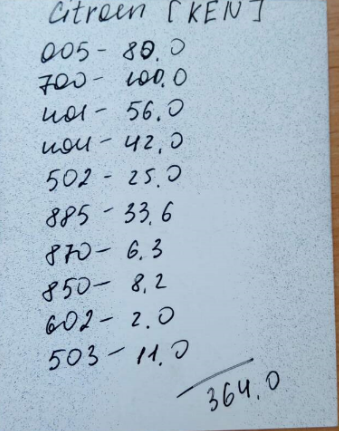 Citroen [KEN]
005 - 80.0
700 - 100.0
401 - 56.0
404 - 42.0
502 - 25.0
885 - 33.6
870 - 6.3
850 - 8.2
602 - 2.0
503 - 11.0
364.0